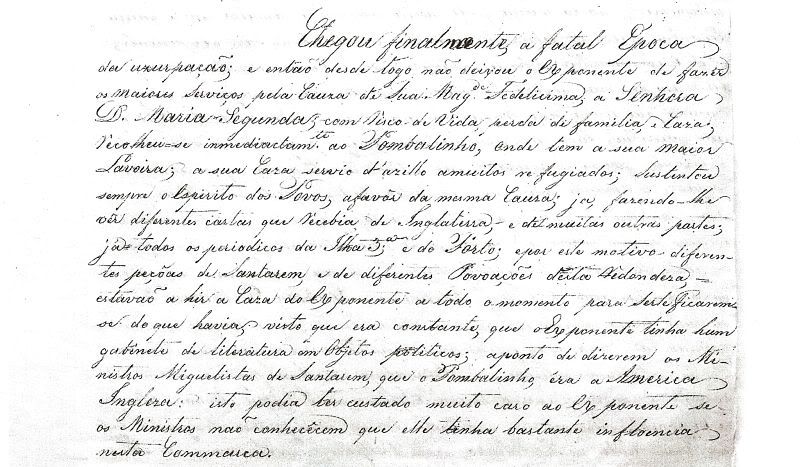 Chegou finalmente, a fatal Epoca
da uzurpação; e então desde logo não deixou o Exponente de fazer
os maiores Serviços pela Cauza de Sua Mag.de Fedelicima, a Senhora
D. Maria Segunda, com Risco de Vida, perda de familia, e Caza;
Recolheu-se immediactam.te ao Pombalinho, onde tem a sua maior
Lavoira; a sua Caza servio d'azillo amuitos refugiados; Sustentou
sempre o Espirito dos Povos, afavôr da mesma Cauza; ja, fazendo-lhe
vêr diferentes cartas que Recebia de Inglaterra, e de muitas outras partes;
ja todos os periodicos da Ilha 3.a e do Pôrto; e por este motivo diferen-
tes peções de Santarem, e de diferentes Povoações desta Redondeza,
estavão a hir a Caza do Exponente a todo o momento para Serteficarem-
se do que havia, visto que era constante, que o Exponente tinha hum
gabinete de literatura em Objetos politicos; aponto de dizerem os Mi-
nistros Miguelistas de Santarem, que o Pombalinho éra a America
Ingleza: isto podia ter custado muito caro ao Exponente se
os Ministros não conhecêcem que elle tinha bastante influencia
nesta Commarca.